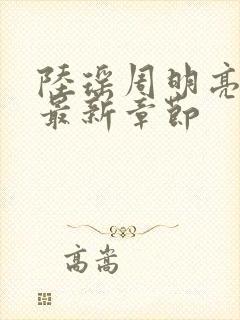 陸瑶周明亮
最新章節
高嵩